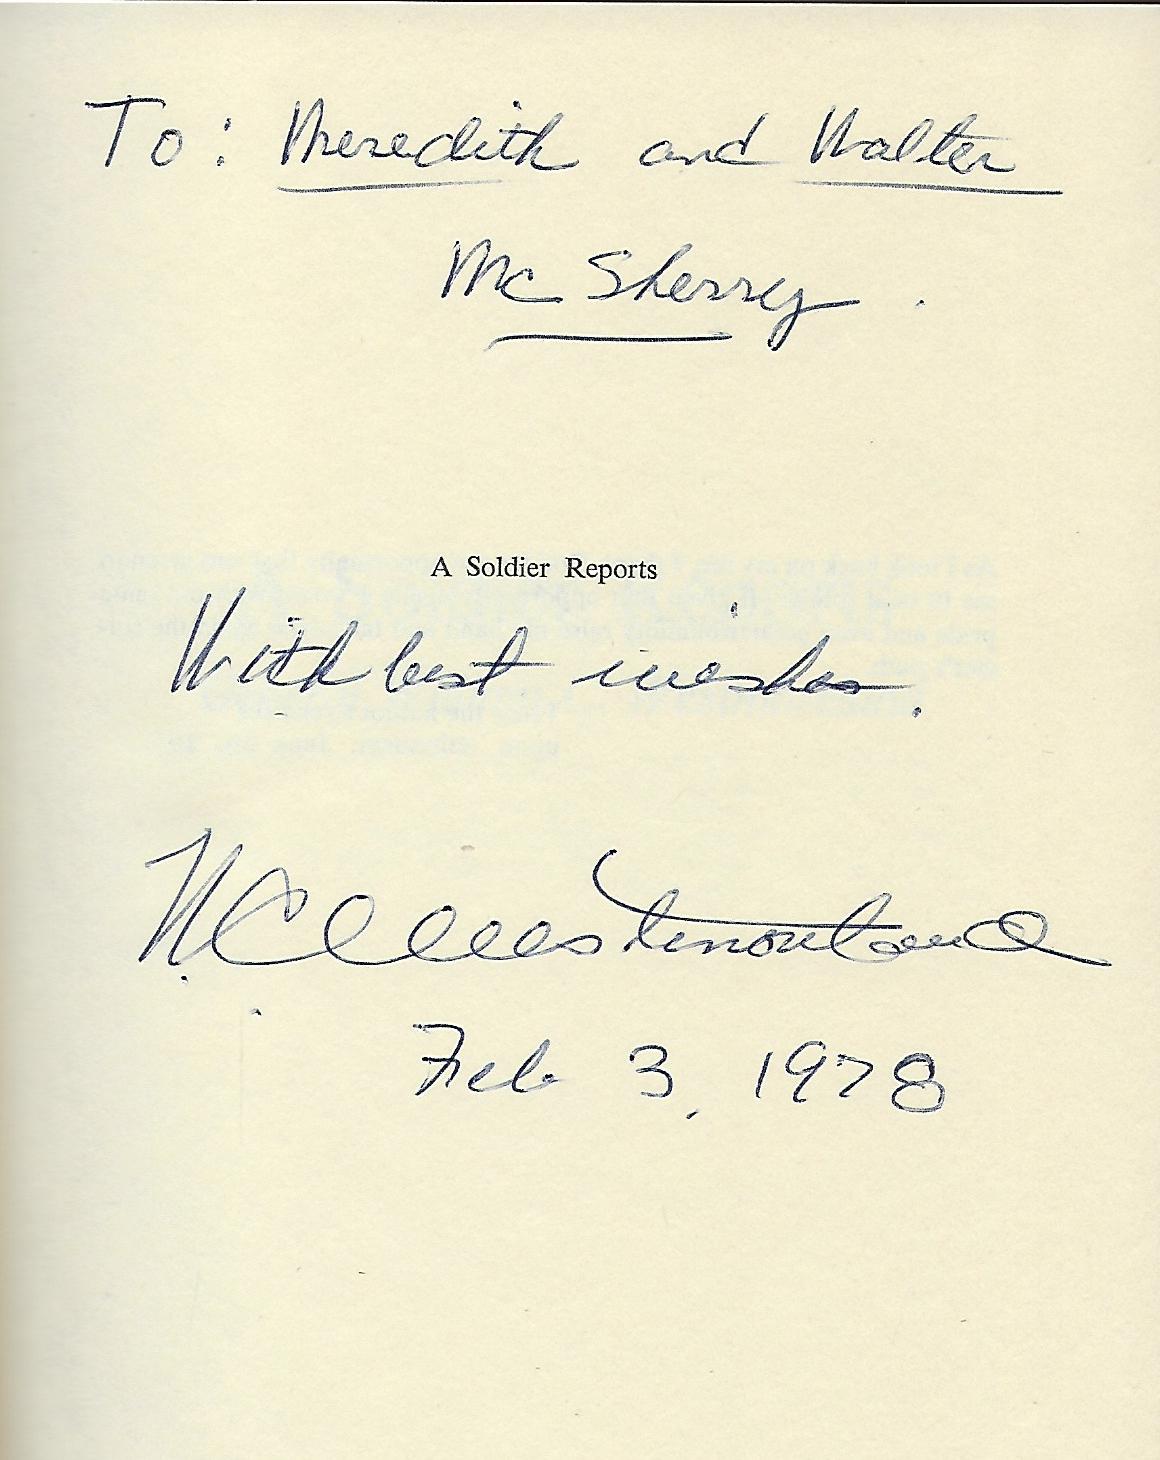 To: Meredith and Walter
McSherry.
A Soldier Reports
With best wishes.
W C Westmoreland
Feb 3, 1978